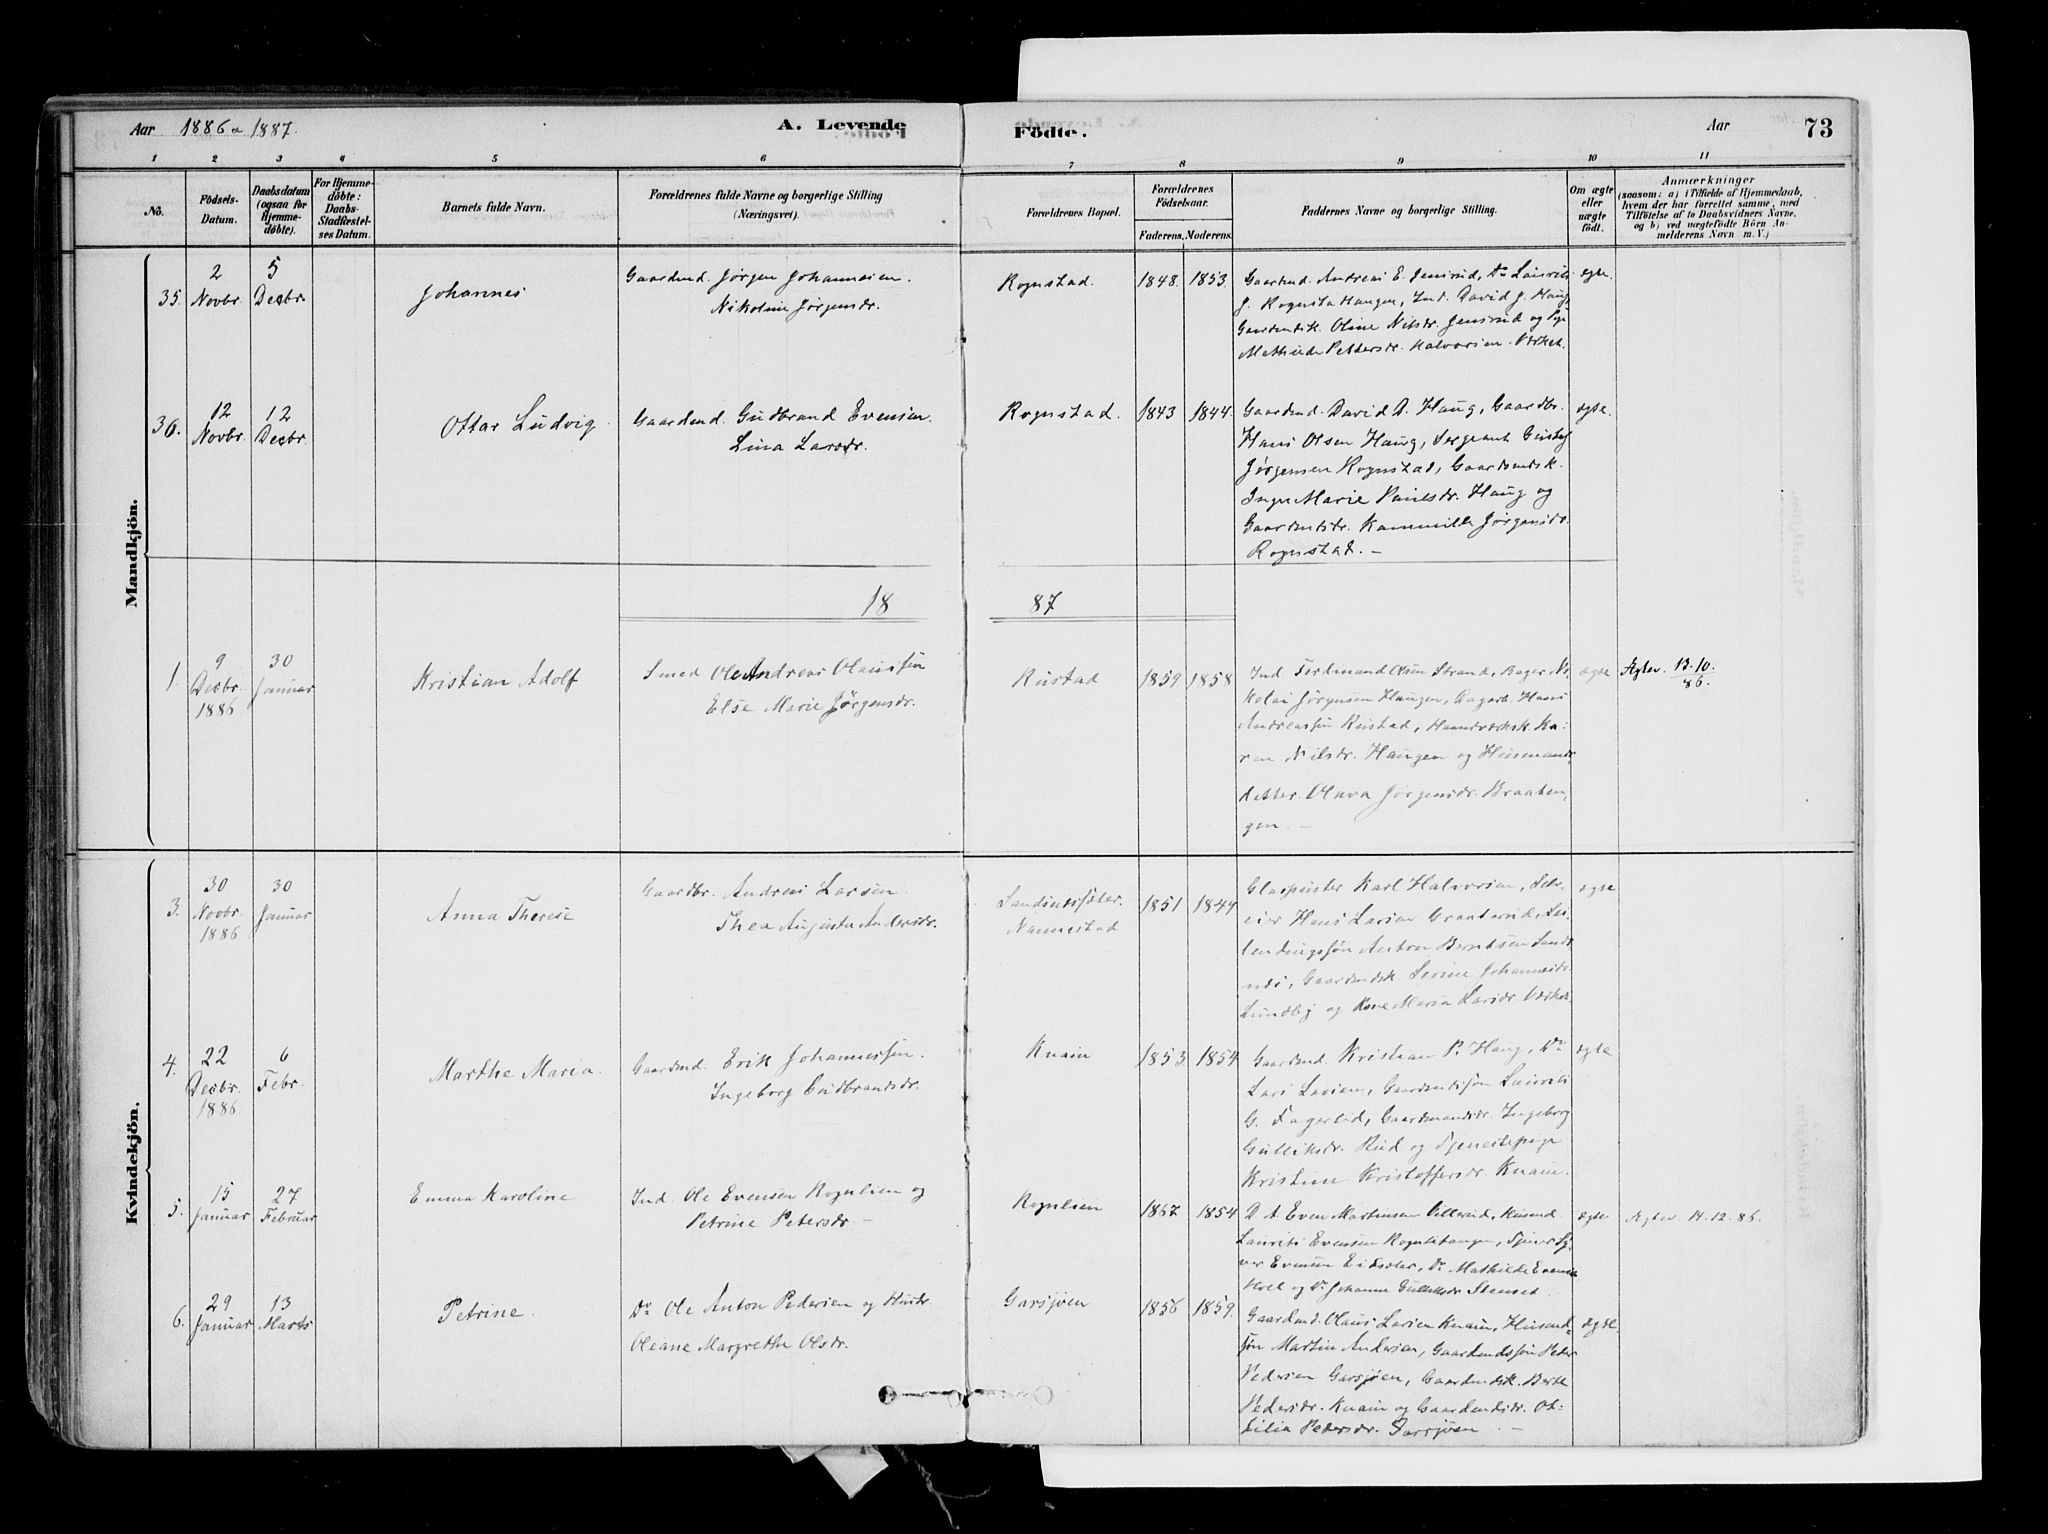 Aar 1886 & 1887.
A. Levende
Födte.
Aar
73
1 2 3 4 5 6 7 8 9 10 11
No.
Födsels-Datum.
Daabsdatum (ogsaa for Hjemme-döbte).
For Hjemme-döbte: Daabs-Stadfæstel-ses Datum.
Barnets fulde Navn.
Forældrenes fulde Navne og borgerlige Stilling
(Næringsvei).
Forældrenes Bopæl.
Forældrenes Födselsaar.
Faderens. Moderens.
Faddernes Navne og borgerlige Stilling.
Om ægte eller uægte födt.
Anmærkninger
(saasom: a) i Tilfælde af Hjemmedaab,
hvem der har forrettet samme, med
Tilföielse af to Daabsvidners Navne,
og b) ved uægtefödte Börn An-
melderens Navn m. V.)
Mandkjön.
35. 2 Novbr. 5 Decbr. Johannes
Gaardmd. Jørgen Johannesen.
Nikoline Jørgensdr.
Rognstad. 1848. 1853.
Gaardmd. Andreas E. Jensrud, Do Laurits
J. Rognstadhaugen, Ind. David J. Haug,
Gaardmdsk. Oline Nilsdr. Jensrud og Pige
Mathilde Pettersdr. Halvorsen Værket.
ægte.
36. 12 Novbr. 12 Decbr. Ottar Ludvig
Gaardmd. Gudbrand Evensen.
Lina Larsdr.
Rognstad. 1843 1844.
Gaardmd. David D. Haug, Gaardbr.
Hans Olsen Haug, Sergeant Gustaf
Jørgensen Rognstad, Gaardmdsk.
Inger Marie Paulsdr. Haug og
Gaardmdsdr. Kammille Jørgensdr.
Rognstad. —
ægte.
18 87
1. 9 Decbr. 1886 30 Januar Kristian Adolf
Smed Ole Andreas Olaussen
Else Marie Jørgensdr.
Rustad 1859 1858
Ind. Ferdinand Olsen Strand, Bager Ni-
kolai Jørgensen Haugen, Hans
Andreassen Rustad, Haandværksk. Ka-
ren Nilsdr. Haugen og Husmands-
datter Olava Jørgensdr. Braaten-
gen. —
ægte
Ægtev. 13-10. 86.
Kvindekjön.
3. 30 Novbr. 1886 30 Januar Anna Therese
Gaardbr. Andreas Larsen.
Thea Augusta Andersdr.
Nannestad
1851 1844
Glasmester Karl Halvorsen, Selv-
eier Hans Larsen Graaterud,
Anton Berntsen Sand-
nes, Gaardmdsk. Severine Johannesdr.
Lundby og Maria Larsdr. Værket
ægte
4. 22 Decbr. 1886 6 Febr. Marthe Maria.
Gaardmd. Erik Johannessen.
Ingeborg Gudbrandsdr.
Knain 1853 1854
Gaardmd. Kristian P. Haug, Do
Lars Larsen, Gaardmdssøn Laurits
G. Fagerlid, Gaardmandsdr. Ingeborg
Gulliksdr. Rud og Tjenestepige
Kristine Kristoffersdr. Knain.
ægte
5. 15 Januar 27 Februar Emma Karoline
Ind. Ole Evensen Rognlien og
Petrine Petersdr. —
Rognlien 1867 1854
D. A. Even Martinsen Billerud, Husmd.
Laurits Evensen Rognlihaugen, Tjener Sy-
ver Evensen Eidsæter, Do Mathilde Evensdr.
Hoel og Do Johanne Gulliksdr. Stenset.
ægte
Ægtev. 14-12-86.
6. 29 Januar 13 Marts Petrine.
Do Ole Anton Pedersen og Hustr.
Oleane Margrethe Olsdr.
Garsjøen 1856 1859.
Gaardmd. Olaus Larsen Knain, Husmd-
søn Martin Andersen, Gaardmdssøn Peder
Pedersen Garsjøen, Gaardmdsk. Berte
Pedersdr. Knain og Gaardmdsdr. Ot-
tilia Pedersdr. Garsjøen. —
ægte.